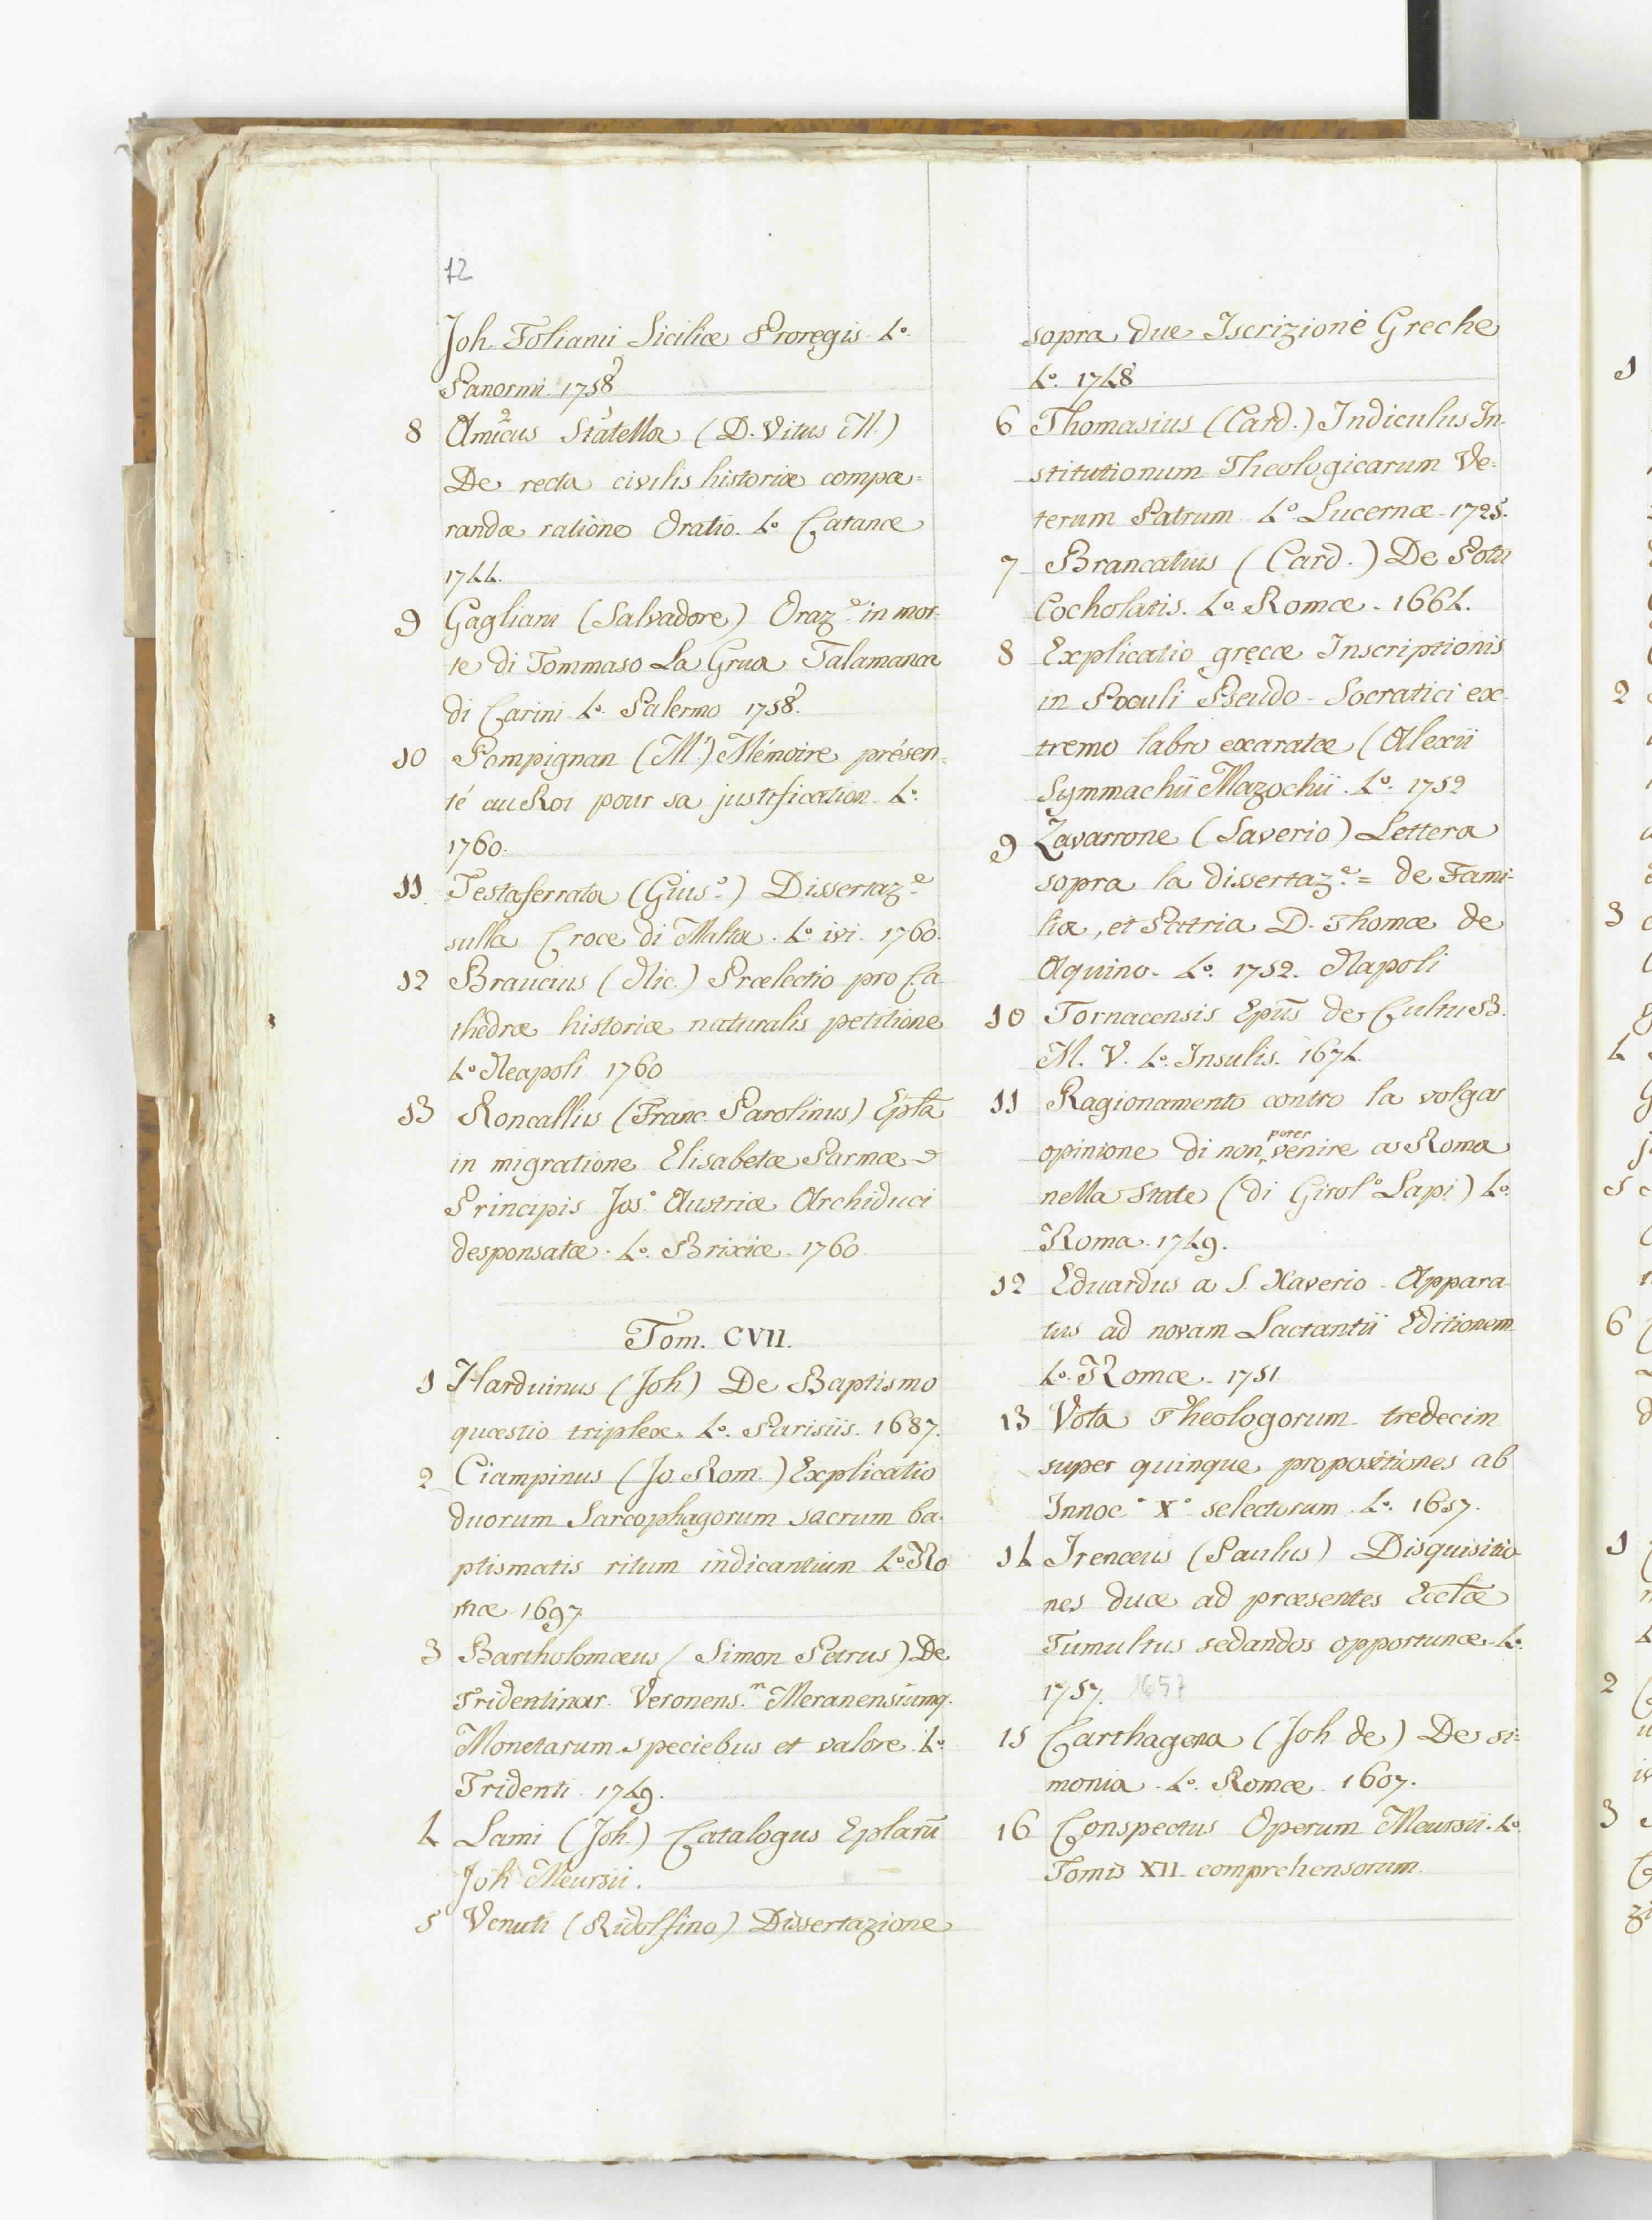 72
Joh. Foliani Siciliæ Proregis. 4º.
Panormi 1758
8 Amicus Statella (D. Vitus M.)
De recta civilis historiæ compa=
randæ ratione Oratio. 4º. Catanæ
1744.
9 Gagliani (Salvadore) Oraz.e in mor=
te di Tommaso La Grua Talamanca
di Carini 4º. Palermo 1758.
10 Pompignan (Mr.) Mémoire présen=
té au Roi pour sa justification. 4º.
1760.
11 Testaferrata (Gius.e) Dissertaz.e
sulla Croce di Malta. 4º. ivi. 1760.
12 Braucius (Nic.) Prælectio pro Ca=
thedræ historiæ naturalis petitione
4º Neapoli 1760
13 Roncallius (Franc. Parolinus) Epla
in migratione Elisabetæ Parmæ
Principis Jos.o Austriæ Archiduci
desponsatæ. 4º. Brixiæ. 1760
Tom. CVII.
1 Harduinus (Joh) De Baptismo
quæstio triplex. 4º. Parisiis. 1687.
2 Ciampinus (Jo. Rom.) Explicatio
duorum Sarcophagorum sacrum ba=
ptismatis ritum indicantium 4º. Ro
mæ 1697
3 Bartholomæus (Simon Petrus) De
Tridentinar. Veronens.m Meranensiumq.
Monetarum speciebus et valore. 4º.
Tridenti 1749.
4 Lami (Joh.) Catalogus Eplarū
Joh Meursii.
5 Venuti (Ridolfino) Dissertazione
sopra due Iscrizioni Greche
4º. 1748
6 Thomasius (Card.) Indiculus In=
stitutionum Theologicarum Ve=
terum Patrum. 4º Lucernæ. 1725.
7 Brancatius (Card.) De Potu
Cocholatis. 4º. Romæ. 1664.
8 Explicatio gręcæ Inscriptionis
in Poculi Pseudo-Socratici ex=
tremo labro exaratæ (Alexii
Symmachii Mazochii. 4º. 1752
9 Zavarrone (Saverio) Lettera
sopra la dissertaz.e = de Fami=
lia, et Patria D. Thomæ de
Aquino. 4º. 1752. Napoli
10 Tornacensis Epūs de Cultu B.
M. V. 4º. Insulis. 1674.
11 Ragionamento contro la volgar
opinione di non poter venire a Roma
nella State (di Girol.o Lapi) 4º.
Roma. 1749.
12 Eduardus a S. Xaverio. Appara
tus ad novam Lactantii Editionem
4º. Romæ. 1751
13 Vota Theologorum tredecim
super quinque propositiones ab
Innoc.o X.o selectorum. 4º. 1657.
14 Irenæus (Paulus) Disquisitio
nes duæ ad præsentes Eccłæ
Tumultus sedandos opportunæ. 4º.
1757. 1657
15 Carthagena (Joh de) De si=
monia. 4º. Romæ. 1607.
16 Conspectus Operum Meursii. 4º.
Tomis XII. comprehensorum.